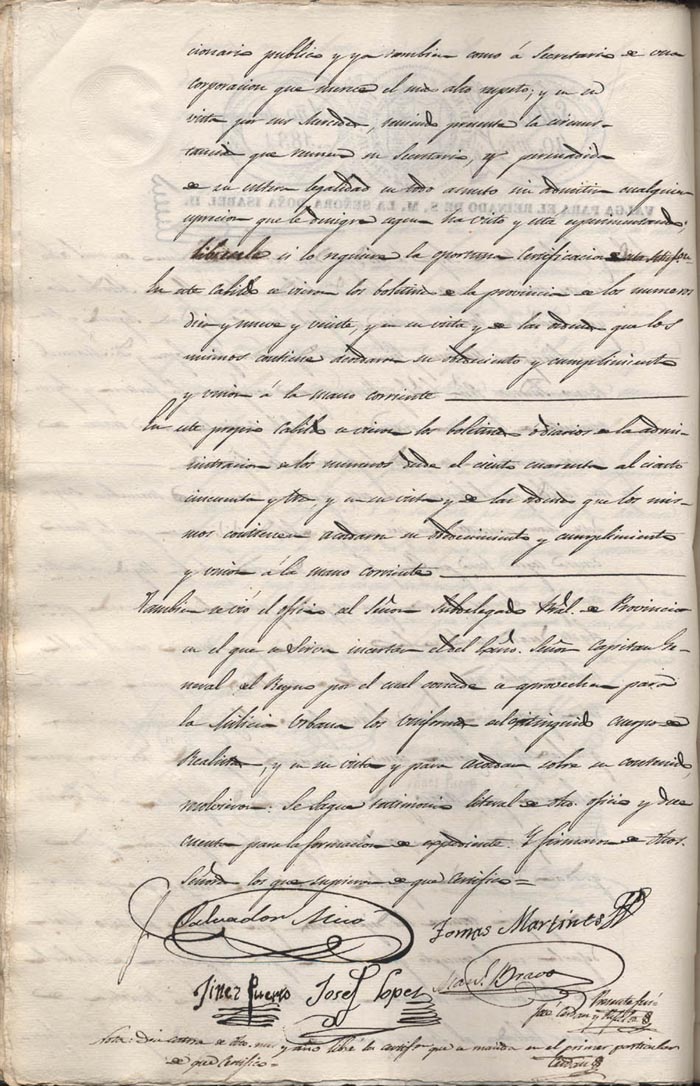 cionario publico y ya tambien como á Secretario de una
corporacion que merece el mas alto reputo; y en su
vista por sus Mercedes, teniendo presente la circuns-
tancia que reune su Secretario, y persuadidos
de su ultima legalidad en todo asunto sin admitir cualquiera
expresion que le denigre agena ha visto y está esperimentando:
librese le si lo requiere la oportuna Certificacion
VALGA PARA EL REINADO DE S. M. LA SEÑORA DOÑA ISABEL II.
En este Cabildo se vieron los boletines de la provincia de los numeros
diez y nueve y veinte, y en su vista y de las ordenes que los
mismos contiene acordaron su obedecimiento y cumplimiento
y union á la mano corriente
En este propio Cabildo se vieron los boletines diarios de la admi-
nistracion de los numeros desde el ciento cuarenta al ciento
cincuenta y tres, y en su vista y de las ordenes que los mis-
mos contienen acordaron su obedecimiento y cumplimiento
y union á la mano corriente
Tambien se vió el oficio del Señor Subdelegado Pral. de Provincia
en el que se sirve incertar el del Exmo. Señor Capitan Ge-
neral del Reyno por el cual concede se aprovechen para
la Milicia Urbana los uniformes del extinguido cuerpo de
Realistas, y en su vista y para acordar sobre su contenido
resolvieron: Se saque testimonio literal de dho. oficio y dee
cuenta para la formacion de expediente. Y firmaron de dhos.
Señores los que supieron de que Certifico =
Salvador Micó
Tomas Martines
Jinez Puerto
Josef Lopez
Manl. Bravo
Presente fui
José
Nota: Dia de dho. mes y año libré la certifon. que se manda en el primer particular
de que Certifico =